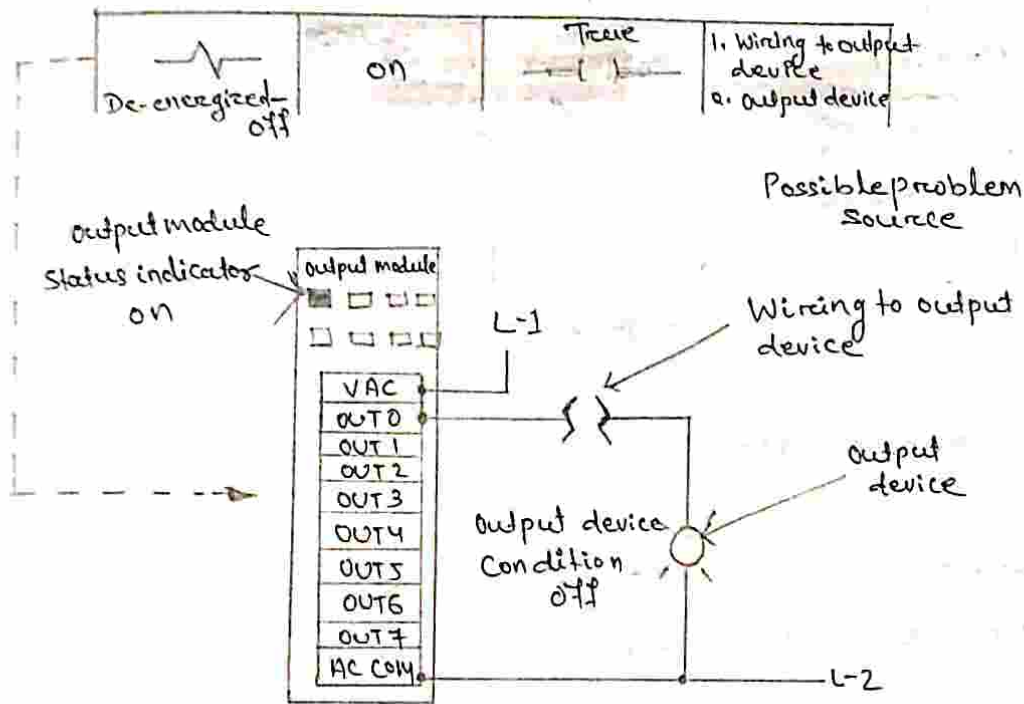 De-energized-
off
on
True
1. Wiring to output
device
2. output device
Possible problem
source
output module
Status indicator
on
output module
L-1
Wiring to output
device
VAC
OUT 0
OUT 1
OUT 2
OUT 3
OUT 4
OUT 5
OUT 6
OUT 7
AC COM
output
device
Output device
Condition
off
L-2